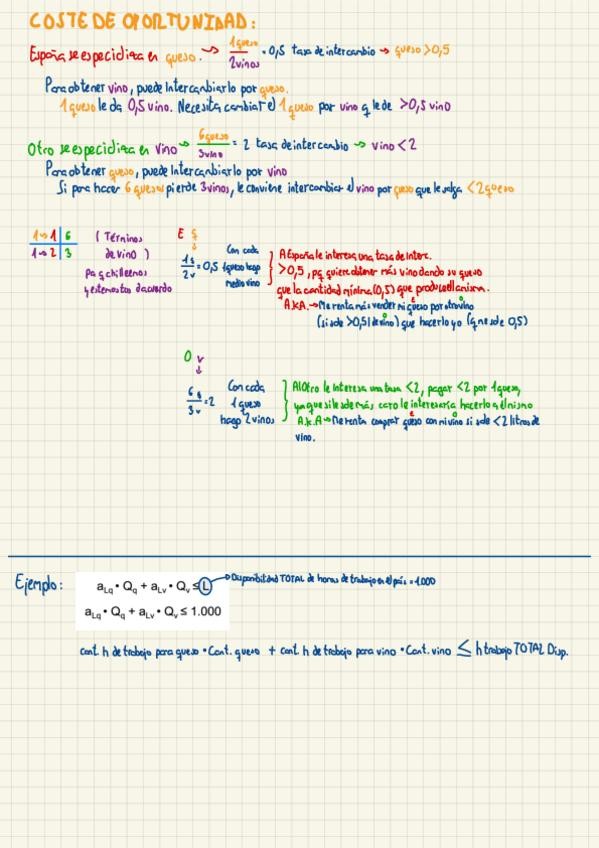 COSTE DE OPORTUNIDAD:
España se especializa en queso. → 1 queso / 2 vinos = 0,5 tasa de intercambio → queso > 0,5
Para obtener vino, puede intercambiarlo por queso.
1 queso le da 0,5 vino. Necesita cambiar el 1 queso por vino q le de >0,5 vino
Otro se especializa en vino → 6 queso / 3 vino = 2 tasa de intercambio → vino < 2
Para obtener queso, puede intercambiarlo por vino
Si para hacer 6 quesos pierde 3 vinos, le conviene intercambiar el vino por queso que le salga <2 queso
1→1 | 6
1→2 | 3
(Términos de vino)
Pa q chilleenos
y estemos to da cuerdo
E q
1q / 2v = 0,5
Con cada
1 queso hago
medio vino
A España le interesa una tasa de interc.
>0,5, pq quiere obtener más vino dando su queso
que la cantidad mínima (0,5) que produce ella misma.
A.K.A. → Me renta más vender mi queso por otro vino
(si sale >0,5 l de vino) que hacerlo yo (q me sale 0,5)
O v
6q / 3v = 2
Con cada
1 queso
hago 2 vinos
Al Otro le interesa una tasa <2, pagar <2 por 1 queso,
ya que si le sale más caro le interesaría hacerlo él mismo
A.K.A → Me renta comprar queso con mi vino si sale <2 litros de
vino.
Ejemplo:
aLq • Qq + aLv • Qv ≤ L → Disponibilidad TOTAL de horas de trabajo en el país = 1.000
aLq • Qq + aLv • Qv ≤ 1.000
cant. h de trabajo para queso • Cant. queso + cant. h de trabajo para vino • Cant. vino ≤ h trabajo TOTAL Disp.